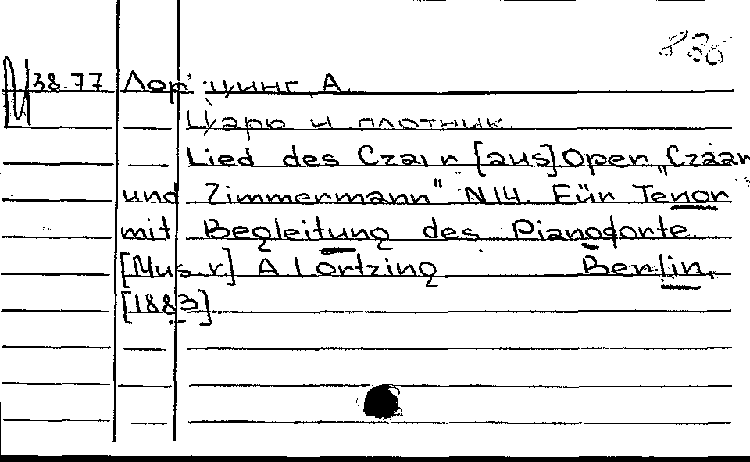 836
38.77 Лорцинг, А.
Царь и плотник
Lied des Czarn [aus] Oper „Czaar
und Zimmermann" N14. Für Tenor
mit Begleitung des Pianoforte
[Mus v.] A Lortzing Berlin,
[1883]